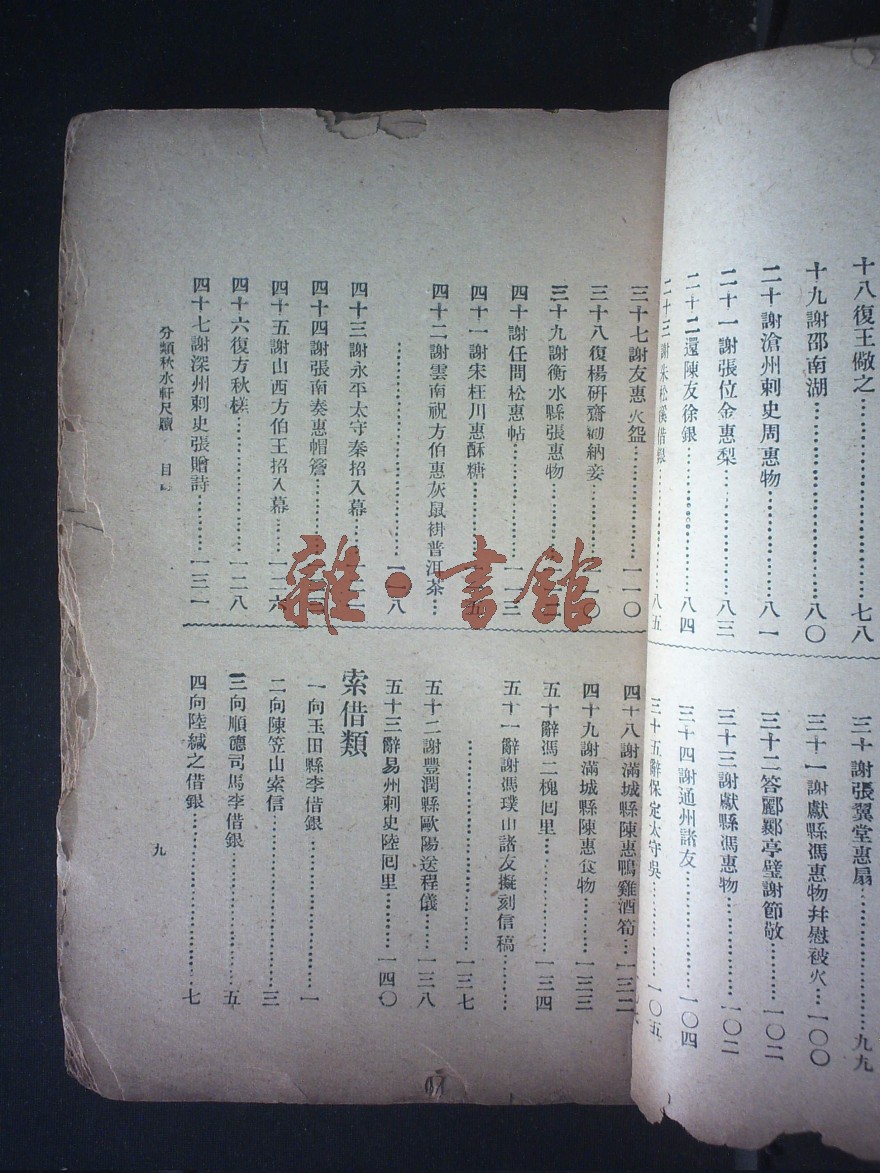 十八復王儆之……七八
十九謝邵南湖……八〇
二十謝滄州刺史周惠物……八一
二十一謝張位金惠梨……八三
二十二還陳友徐銀……八四
二十三謝朱松溪借銀……八五
三十謝張翼堂惠扇……九九
三十一謝獻縣馮惠物幷慰被火…一〇〇
三十二答酈鄴亭璧謝節敬……一〇二
三十三謝獻縣馮惠物……一〇二
三十四謝通州諸友……一〇四
三十五辭保定太守吳……一〇五
三十七謝友惠火盌……一一〇
三十八復楊硏齋勸納妾……一一〇
三十九謝衡水縣張惠物
四十謝任問松惠帖……一一三
四十一謝宋枉川惠酥糖
四十二謝雲南祝方伯惠灰鼠褂普洱茶…
……一一八
四十三謝永平太守秦招入幕
四十四謝張南奏惠帽簷
四十五謝山西方伯王招入幕……一二六
四十六復方秋槎……一二八
四十七謝深州刺史張贈詩……一三一
四十八謝滿城縣陳惠鴨雞酒筍…一三二
四十九謝滿城縣陳惠食物……一三三
五十辭馮二槐囘里……一三四
五十一辭謝馮璞山諸友擬刻信稿……
……一三七
五十二謝豐潤縣歐陽送程儀……一三八
五十三辭易州刺史陸囘里……一四〇
索借類
一向玉田縣李借銀……一
二向陳笠山索信……三
三向順德司馬李借銀……五
四向陸緘之借銀……七
分類秋水軒尺牘 目
九
雜·書館